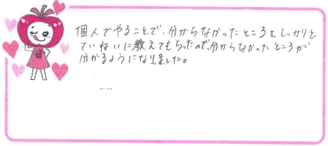 個人でやることで、分からなかったところをしっかりと
ていねいに教えてもらったので分からなかったところが
分かるようになりました。